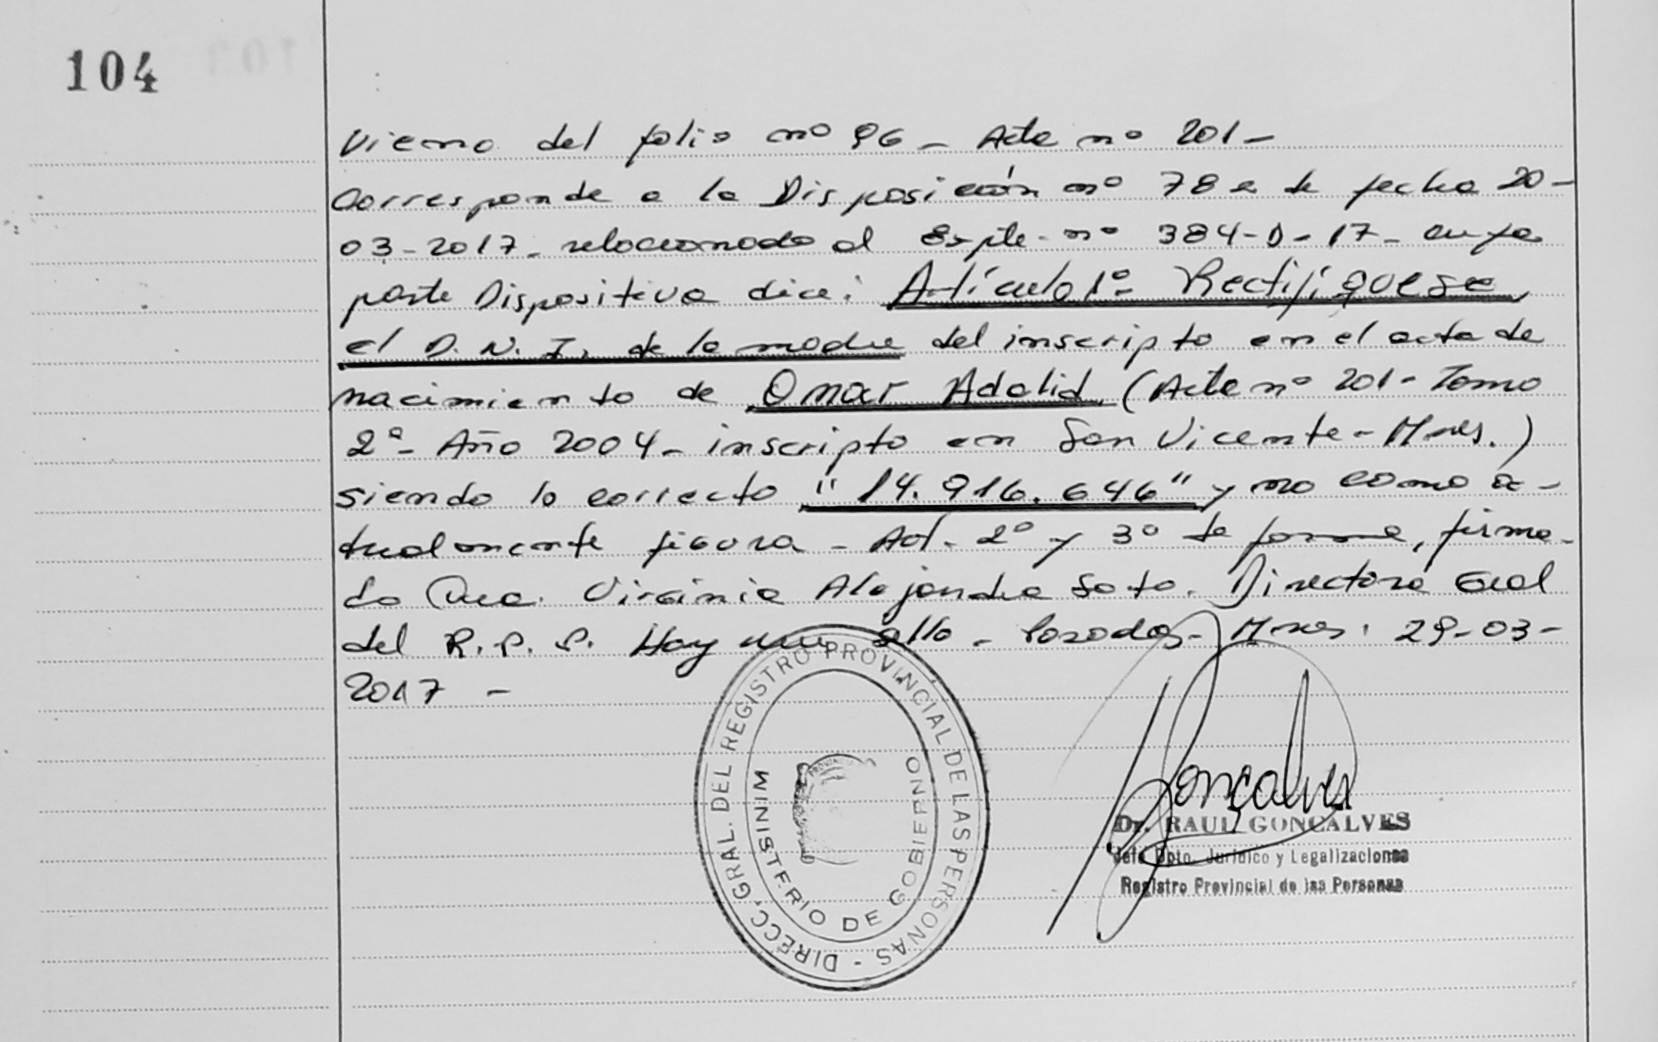 104
Viene del folio nº 96 - Acta nº 201 -
Corresponde a la Disposición nº 782 de fecha 20-
03-2017 - relacionado al Expte. nº 384-D-17 - cuya
parte Dispositiva dice: Artículo 1º- Rectifíquese
el D.N.I. de la madre del inscripto en el acta de
nacimiento de Omar Adalid (Acta nº 201 - Tomo
2º - Año 2004 - inscripto en San Vicente - Mnes.)
siendo lo correcto "14.916.646" y no como a-
tualmente figura - Art. 2º y 3º de forma, firma-
do Dra. Virginia Alejandra Soto. Directora Gral
del R.P.P. Hay un sello - Posadas - Mnes. 29-03-
2017 -
DIRECC. GRAL. DEL REGISTRO PROVINCIAL DE LAS PERSONAS -
MINISTERIO DE GOBIERNO
Gonçalves
Dr. RAUL GONCALVES
Jefe Dpto. Jurídico y Legalizaciones
Registro Provincial de las Personas